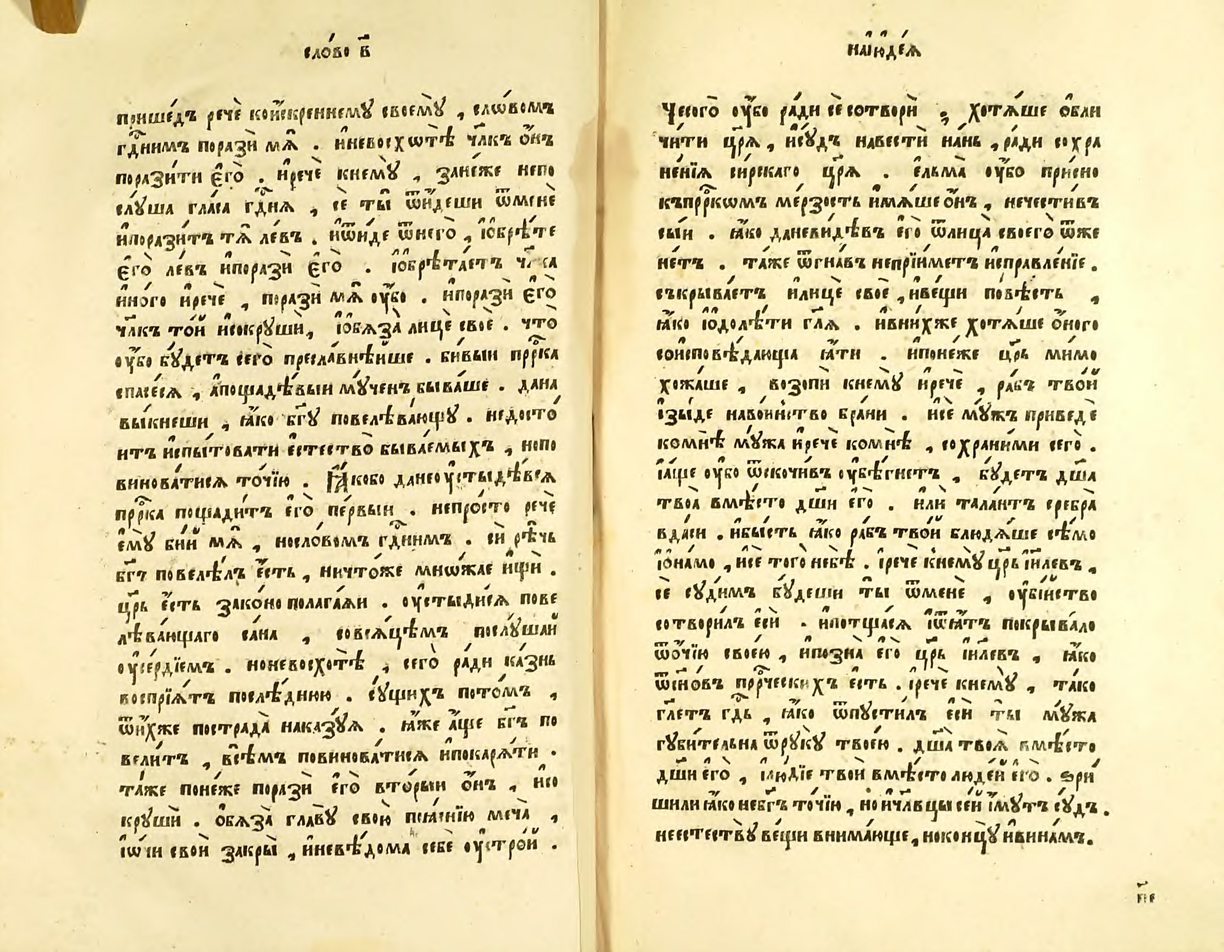 сло́во в҃
прише́дъ речѐ кои́скреннему своемꙋ̀ , сло́вомъ
гдⷭ҇нимъ порази̂ мѧ̀ . и҆невосхотѣ̀ чл҃къ о҆́нъ
порази́ти є҆го̀ . и҆речѐ кнемꙋ̀ , зане́же непо
слꙋ́ша гла́са гдⷭ҇нѧ , се ты̀ ѿи́деши ѿменѐ
и҆порази́тъ тѧ̀ ле́въ . и҆ѿи́де ѿнего̀ , і҆ѡбрѣ́те
є҆го̀ ле́въ и҆порази̂ є҆го̀ . і҆ѡбрѣта́етъ чл҃ка
и҆но́го и҆речѐ , порази̂ мѧ̀ ᲂу҆̀бо . и҆порази̂ є҆го̀
чл҃къ то́й и҆сокрꙋши̂ , і҆ѡбѧза̀ лицѐ своѐ . что̀
ᲂу҆̀бо бꙋ́детъ сего̀ пресла́внѣише . би́выи прⷪ҇рка
спасе́сѧ , а҆пощадѣ́выи мꙋ́ченъ быва́ше . дана
вы́кнеши , ꙗ҆́ко бг҃ꙋ повелѣва́ющꙋ . недосто́
итъ и҆спы́товати є҆стество̀ быва́емыхъ , непо
винова́тисѧ то́чїю . Ꙗ҆́кобо данеᲂу҆стыдѣ́всѧ
прⷪ҇рка пощади́тъ є҆го̀ пе́рвыи . непро́сто речѐ
є҆мꙋ̀ бі́й мѧ̀ , носло́вомъ гдⷭ҇нимъ . си̂ рѣ́чь
бг҃ъ повелѣ́лъ є҆́сть , ничто́же мно́жае и҆щи̂ .
цр҃ь є҆́сть зако́нополага́ѧи . ᲂу҆стыди́сѧ пове
лѣва́ющаго са́на , совсѧ́цѣмъ послꙋ́шай
ᲂу҆се́рдїемъ . ноневосхотѣ̀ , сего̀ ра́ди ка́знь
воспрїѧ́тъ послѣ́днюю . сꙋ́щихъ пото́мъ ,
ѿи́хже пострада̀ наказꙋ́ѧ . ꙗ҆́же а҆́ще бг҃ъ по
вели́тъ , всѣ́мъ повинова́тисѧ и҆покарѧ́ти .
та́же поне́же порази̂ є҆го̀ вторы́и о҆́нъ , и҆со
крꙋши̂ . ѡбѧза̀ главꙋ̀ свою̀ меча̀ ,
і҆ѡ́чи свои̂ закры̀ , и҆невѣ́дома себѐ ᲂу҆стро́и .
наі҆юде́ѧ
Чесого̀ ᲂу҆̀бо ра́ди сѐ сотвори̂ ; хотѧ́ше ѡ҆бли
чи́ти цр҃ѧ̀ , и҆сꙋ́дъ навестѝ на́нь , ра́ди сохра
не́нїѧ си́рскаго цр҃ѧ̀ . є҆льма̀ ᲂу҆̀бо при́сно
къпрⷪ҇ркомъ ме́рзость и҆мѧ́ше о҆́нъ , нечести́въ
сыи̂ . ꙗ҆́ко даневи́дѣвъ є҆го̀ ѿлица̀ своего̀ ѿже
не́тъ . та́же ѿгна́въ непрїи́метъ и҆справле́нїе .
съкрыва́етъ и҆лицѐ своѐ , и҆ве́щи по́вѣсть ,
ꙗ҆́ко і҆ѡдолѣ́ти гл҃ѧ . и҆вни́хже хотѧ́ше о҆́ного
соисповѣ́дающїа ꙗ҆́ти . и҆поне́же цр҃ь мимо
хожа́ше , возопи̂ кнемꙋ̀ и҆речѐ , ра́бъ тво́й
і҆зы́де наво́инство бра́ни . и҆сѐ мꙋ́жъ приведѐ
комнѣ̀ мꙋ́жа и҆речѐ комнѣ̀ , сохраними сего̀ .
і҆а҆́ще ᲂу҆̀бо ѿскочи́въ ᲂу҆бѣ́гнетъ , бꙋ́детъ дш҃а̀
твоѧ̀ вмѣ́сто дш҃и̂ є҆го̀ . и҆ли̂ тала́нтъ сребра̀
вда́си . и҆бы́сть ꙗ҆́ко ра́бъ тво́й блюдѧ́ше сѣ́мо
і҆ѡна́мо , и҆сѐ того̀ небѣ̀ . і҆речѐ кнемꙋ̀ цр҃ь і҆и҃левъ ,
сѐ сꙋди́мъ бꙋ́деши ты̀ ѿменѐ , ᲂу҆бі́йство
сотвори́лъ є҆сѝ . и҆потща́сѧ і҆ѿѧ́тъ покрыва́ло
ѿо́чїю своею̀ , и҆позна̀ є҆го̀ цр҃ь і҆и҃левъ , ꙗ҆́ко
ѿсыно́въ прⷪ҇рческихъ є҆́сть . і҆речѐ кнемꙋ̀ , та́ко
гл҃етъ гдⷭ҇ь , ꙗ҆́ко ѿпꙋсти́лъ є҆сѝ ты̀ мꙋ́жа
гꙋби́тельна ѿрꙋкꙋ̀ твоею̀ . дш҃а̀ твоѧ̀ вмѣ́сто
дш҃и̂ є҆го̀ , і҆лю́дїе твои̂ вмѣ́сто люде́й є҆го̀ . ѕри̂
шили ꙗ҆́конебг҃ъ то́чїю , но и҆чл҃вцы се́й і҆́мꙋтъ сꙋ́дъ .
неестествꙋ̀ ве́щи внима́юще , ноконцꙋ̀ и҆вина́мъ .